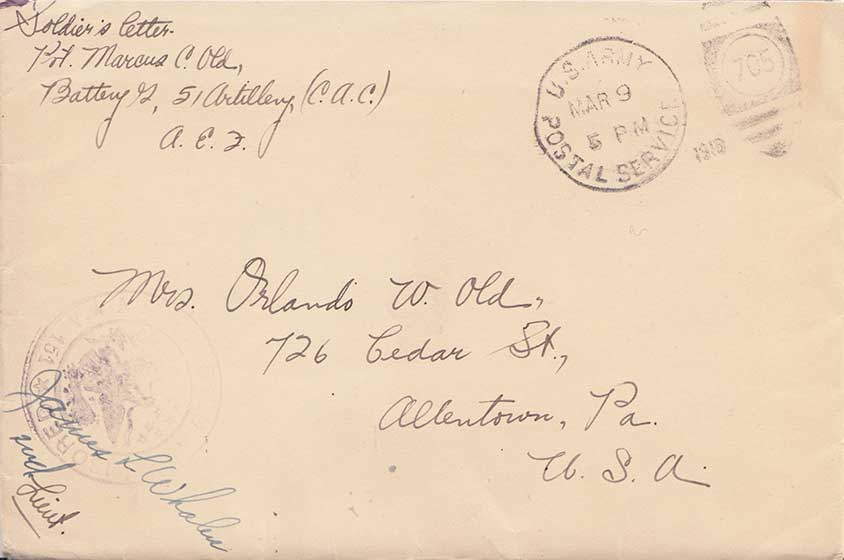 Soldier's letter.
Pvt. Marcus C. Old,
Battery G, 51 Artillery, (C.A.C.)
A. E. F.
U.S. ARMY
MAR 9
5 PM
POSTAL SERVICE
705
Mrs. Orlando W. Old,
726 Cedar St.,
Allentown, Pa.
U. S. A.
James L Whalen
Lieut.